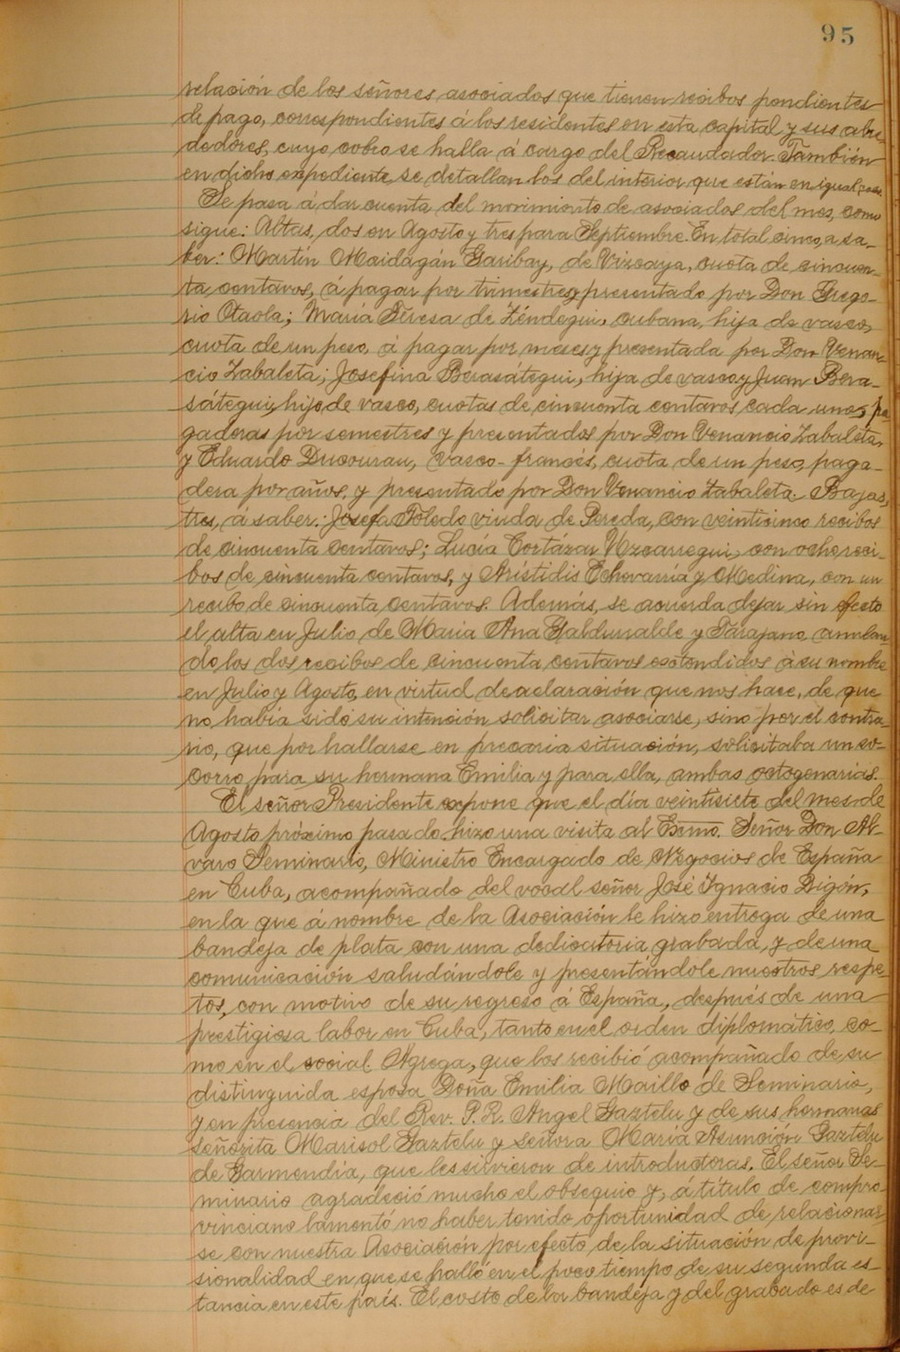 95
relación de los señores asociados que tienen recibos pendientes
de pago, correspondientes á los residentes en esta capital y sus alre-
dedores, cuyo cobro se halla á cargo del Recaudador. También
en dicho expediente se detallan los del interior que están en igual caso.
Se pasa á dar cuenta del movimiento de asociados del mes, como
sigue: Altas, dos en Agosto y tres para Septiembre. En total cinco, a sa-
ber: Martín Maidagán Garibay, de Vizcaya, cuota de cincuen-
ta centavos, á pagar por trimestres y presentado por Don Grego-
rio Otaola; María Teresa de Zéndegui, cubana, hija de vasco,
cuota de un peso, á pagar por meses y presentada por Don Venan-
cio Zabaleta; Josefina Berasátegui, hija de vasco y Juan Bera-
sátegui, hijo de vasco, cuotas de cincuenta centavos cada uno, pa-
gaderas por semestres y presentados por Don Venancio Zabaleta,
y Eduardo Ducourau, vasco-francés, cuota de un peso, paga-
dera por años, y presentado por Don Venancio Zabaleta. Bajas,
tres, á saber: Josefa Toledo viuda de Pereda, con veinticinco recibos
de cincuenta centavos; Lucía Cortázar Vizcarregui, con ocho reci-
bos de cincuenta centavos, y Arístidis Echevarría y Medina, con un
recibo de cincuenta centavos. Además, se acuerda dejar sin efecto
el alta en Julio de María Ana Galdurralde y Tarajano, anulan-
do los dos recibos de cincuenta centavos extendidos á su nombre
en Julio y Agosto, en virtud de aclaración que nos hace, de que
no había sido su intención solicitar asociarse, sino por el contra-
rio, que por hallarse en precaria situación, solicitaba un so-
corro para su hermana Emilia y para ella, ambas octogenarias.
El señor Presidente expone que el día veintisiete del mes de
Agosto próximo pasado hizo una visita al Excmo. Señor Don Al-
varo Seminario, Ministro Encargado de Negocios de España
en Cuba, acompañado del vocal señor José Ignacio Digón,
en la que á nombre de la Asociación le hizo entrega de una
bandeja de plata con una dedicatoria grabada, y de una
comunicación saludándole y presentándole nuestros respe-
tos, con motivo de su regreso á España, después de una
prestigiosa labor en Cuba, tanto en el orden diplomático, co-
mo en el social. Agrega, que los recibió acompañado de su
distinguida esposa Doña Emilia Maillo de Seminario,
y en presencia del Rev. P. R. Angel Gaztelu y de sus hermanas
señorita Marisol Gaztelu y señora María Asunción Gaztelu
de Garmendía, que les sirvieron de introductoras. El señor Se-
minario agradeció mucho el obsequio y, á título de compro-
vinciano lamentó no haber tenido oportunidad de relacionar-
se con nuestra Asociación por efecto de la situación de provi-
sionalidad en que se halló en el poco tiempo de su segunda es-
tancia en este país. El costo de la bandeja y del grabado es de